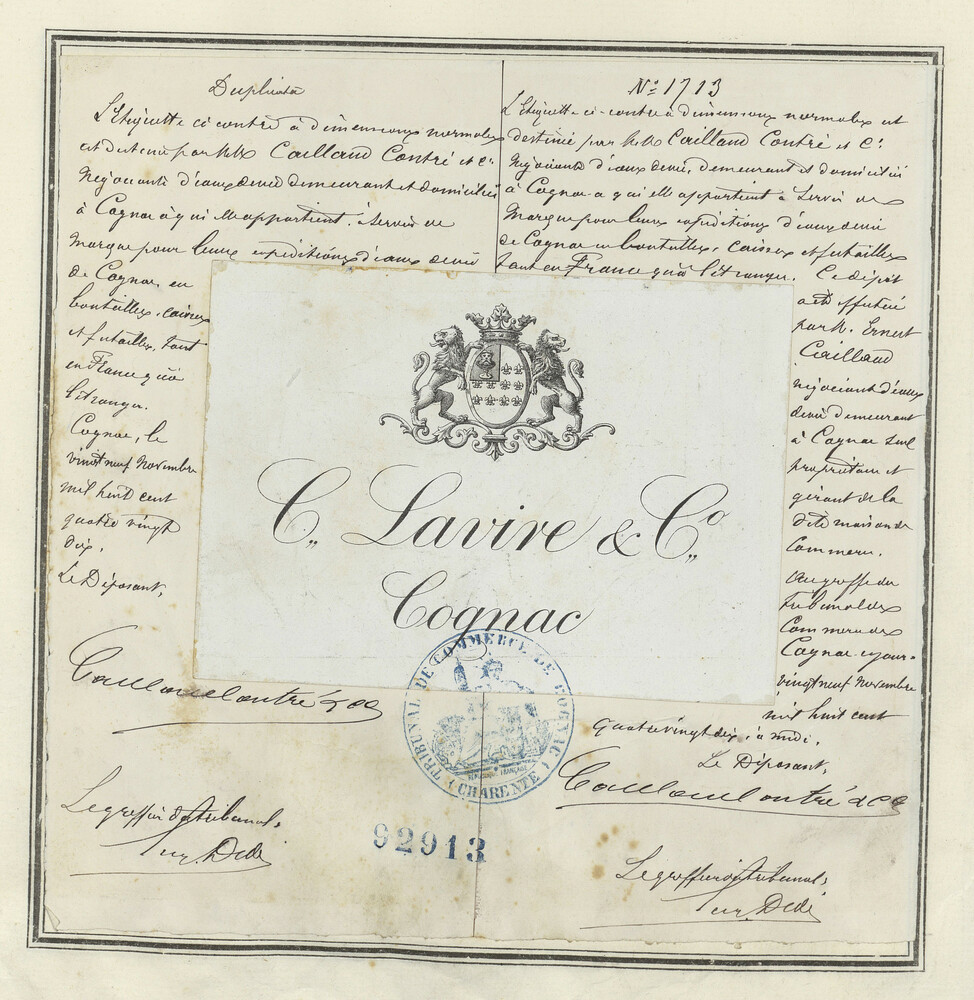 Duplicata
L'Etiquette ci contre à dimensions normales
est destinée par MM Caillaud Contré et Cie
Négociants d'eaux devie demeurant et domiciliés
à Cognac à qui elle appartient. à Servir de
Marque pour leurs expéditions d'eaux devie
de Cognac, en
bouteilles, caisses
et futailles, tant
en France qu'à
l'étranger.
Cognac, le
vingt neuf Novembre
mil huit cent
quatre vingt
dix.
Le Déposant,
Caillaud Contré & Co
Le greffier du tribunal,
No 1713
L'Etiquette ci-contre à dimensions normales est
destinée par MM Caillaud Contré et Cie
Négociants d'eaux devie, demeurant et domiciliés
à Cognac à qui elle appartient à Servir de
Marque pour leurs expéditions d'eaux devie
de Cognac en bouteilles, caisses et futailles
tant en France qu'à l'étranger. Ce dépôt
a été effectué
par M. Ernest
Caillaud
négociant d'eaux
devie demeurant
à Cognac seul
propriétaire et
gérant de la
dite maison de
Commerce.
Au greffe du
Tribunal de
Commerce de
Cognac cejour-
vingt neuf Novembre
mil huit cent
quatre vingt dix, à midi.
Le Déposant,
Caillaud Contré & Co
Le greffier du tribunal,
C. Lavire & Co.
Cognac
TRIBUNAL DE COMMERCE DE COGNAC
RÉPUBLIQUE FRANÇAISE
(CHARENTE)
92913